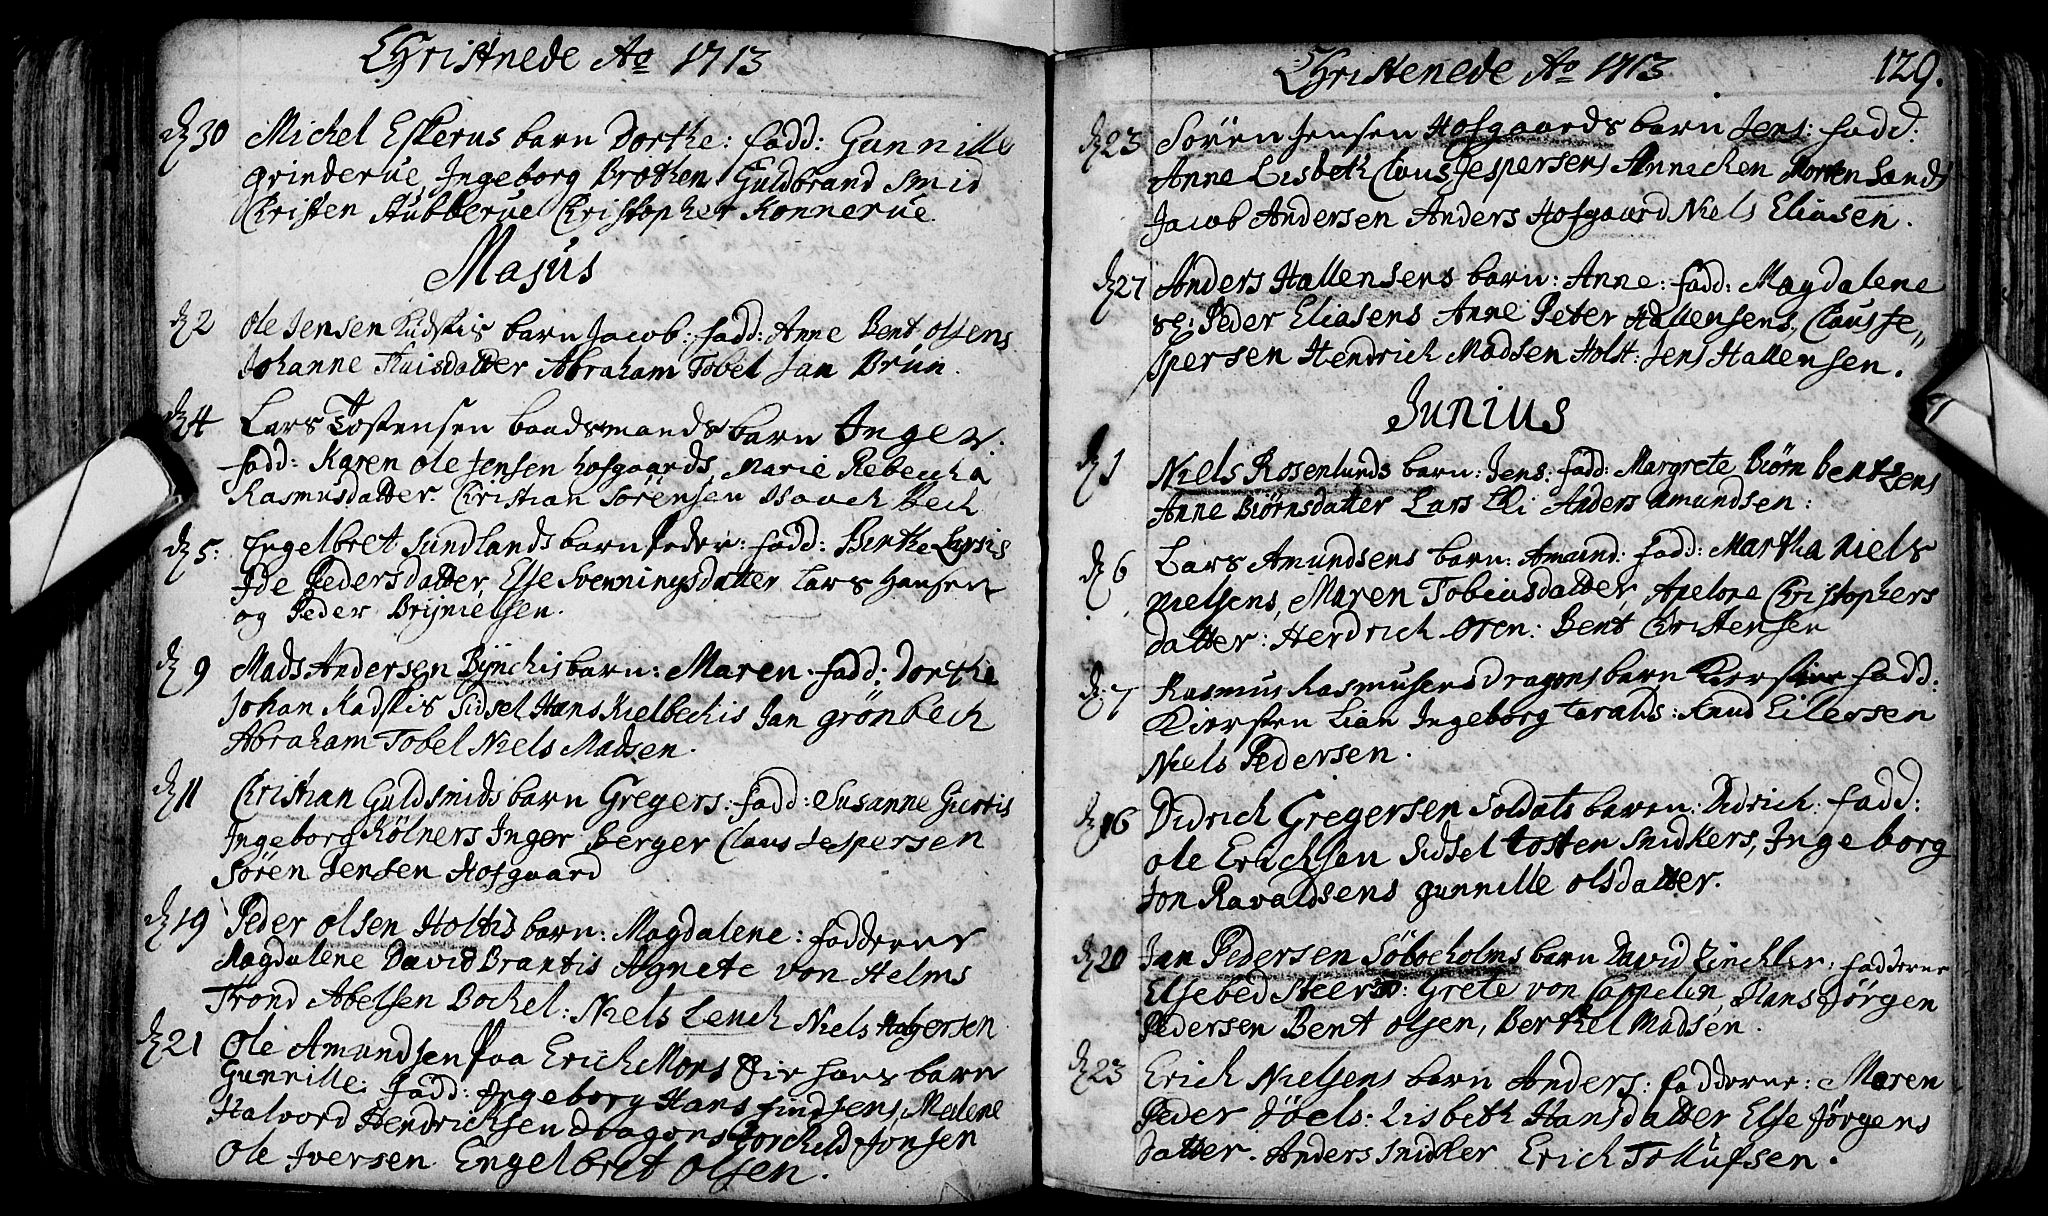 Christnede Ao 1713
d 30 Michel Eskerus barn Dorthe: fadd: Gunnille
Grinderue Ingeborg Brothen Guldbrand Smid
Christen Stubberue Christopher Konnerue.
Majus
d 2 Ole Jensen Kudskis barn Jacob: fadd: Anne Bent Olsens
Johanne Thuisdatter Abraham Tobel Jan Brun.
d 4 Lars Tostensen baadsmands barn Inger.
fadd: Karen Ole Jensen Hofgaards Marie Rebecha
Rasmusdatter. Christian Sörensen Isaach Bech
d 5: Engelbret Sundlands barn Peder: fadd: Birthe Larsis
Ide Pedersdatter, Else Svenningsdatter Lars Hansen
og Peder Brijnielsen.
d 9 Mads Andersen Bijnchis barn: Maren. fadd: Dorthe
Johan Kadskis Sidsel Hans Kielbechis Jan Grönbech
Abraham Tobel Niels Madsen.
d 11 Christian Guldsmids barn Gregers: fadd: Susanne Giertis
Ingeborg Kölners Inger Berger Claus Jespersen
Sören Jensen Hofgaard
d 19 Peder Olsen Holtis barn: Magdalene: fadderne
Magdalene David Brantis Agnete von Helms
Trond Abelsen Bochel: Niels Lench Niels Holgersen
d 21 Ole Amundsen paa Erich Mors Eie hans barn
Gunnille: fadd: Ingeborg Hans Findsens, Malene
Halvord Hendrichsen dragons Torchild Jonsen
Ole Iversen Engelbret Olsen.
Christenede Ao 1713 129.
d 23 Sören Jensen Hofgaards barn Jens: fadd:
Anne Lisbeth Claus Jespersens Annichen Morten Lands
Jacob Andersen Anders Hofgaard Niels Eliasen.
d 27 Anders Hallensens barn: Anne: fadd: Magdalene
Sl: Peder Eliasens Anne Peter Hallensens, Claus Je„
spersen Hendrich Madsen Holst: Jens Hallensen.
Junius
d 1 Niels Rosenlunds barn: Jens: fadd: Margrete Biörn Bentzens
Anne Biörnsdatter Lars Eli Anders Amundsen:
d 6 Lars Amundsens barn: Amund: fadd: Martha Niels
Nielsens, Maren Tobiasdatter, Apelone Christophers
datter: Hendrich Oren: Bent Christensen
d 7 Rasmus Rasmusens Dragons barn Kierstine fadd:
Kiersten Lian Ingeborg Taralds: Knud Eilersen
Niels Pedersen.
d 16 Didrich Gregersen Soldats barn: Didrich: fadd:
Ole Erichsen Sidsel Tosten Snidkers, Ingeborg
Jon Ravaldsens Gunnille Olsdatter.
d 20 Jan Pedersen Söboeholms barn David Zinchler: fadderne
Elsebed Steers: Grete von Cappelen, Hans Jörgen
Pedersen Bent Olsen, Berthel Madsen.
d 23 Erich Nielsens barn Anders: fadderne: Maren
Peder Jöels: Lisbeth Hansdatter Else Jørgens
datter. Anders Snidker Erich Tollufsen.